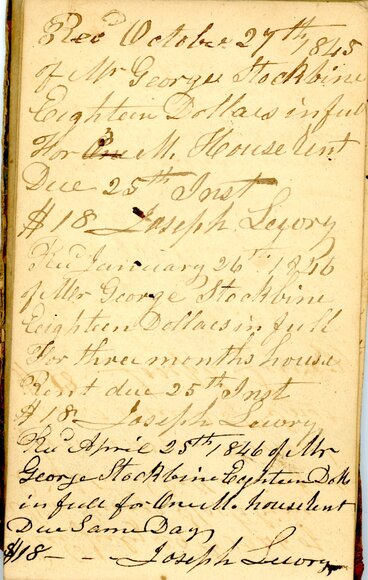 Recd October 27th 1845
of Mr George Stockbine
Eighteen Dollars in full
For 3 M. House rent
Due 25th Inst
$18 Joseph Lewry
Recd January 26th 1846
of Mr George Stockbine
Eighteen Dollars in full
For three months house
Rent due 25th Inst
$18 Joseph Lewry
Recd April 25th 1846 of Mr
George Stockbine Eighteen Dolls
in full for One M. house rent
Due Same Day
$18 - - Joseph Lewry